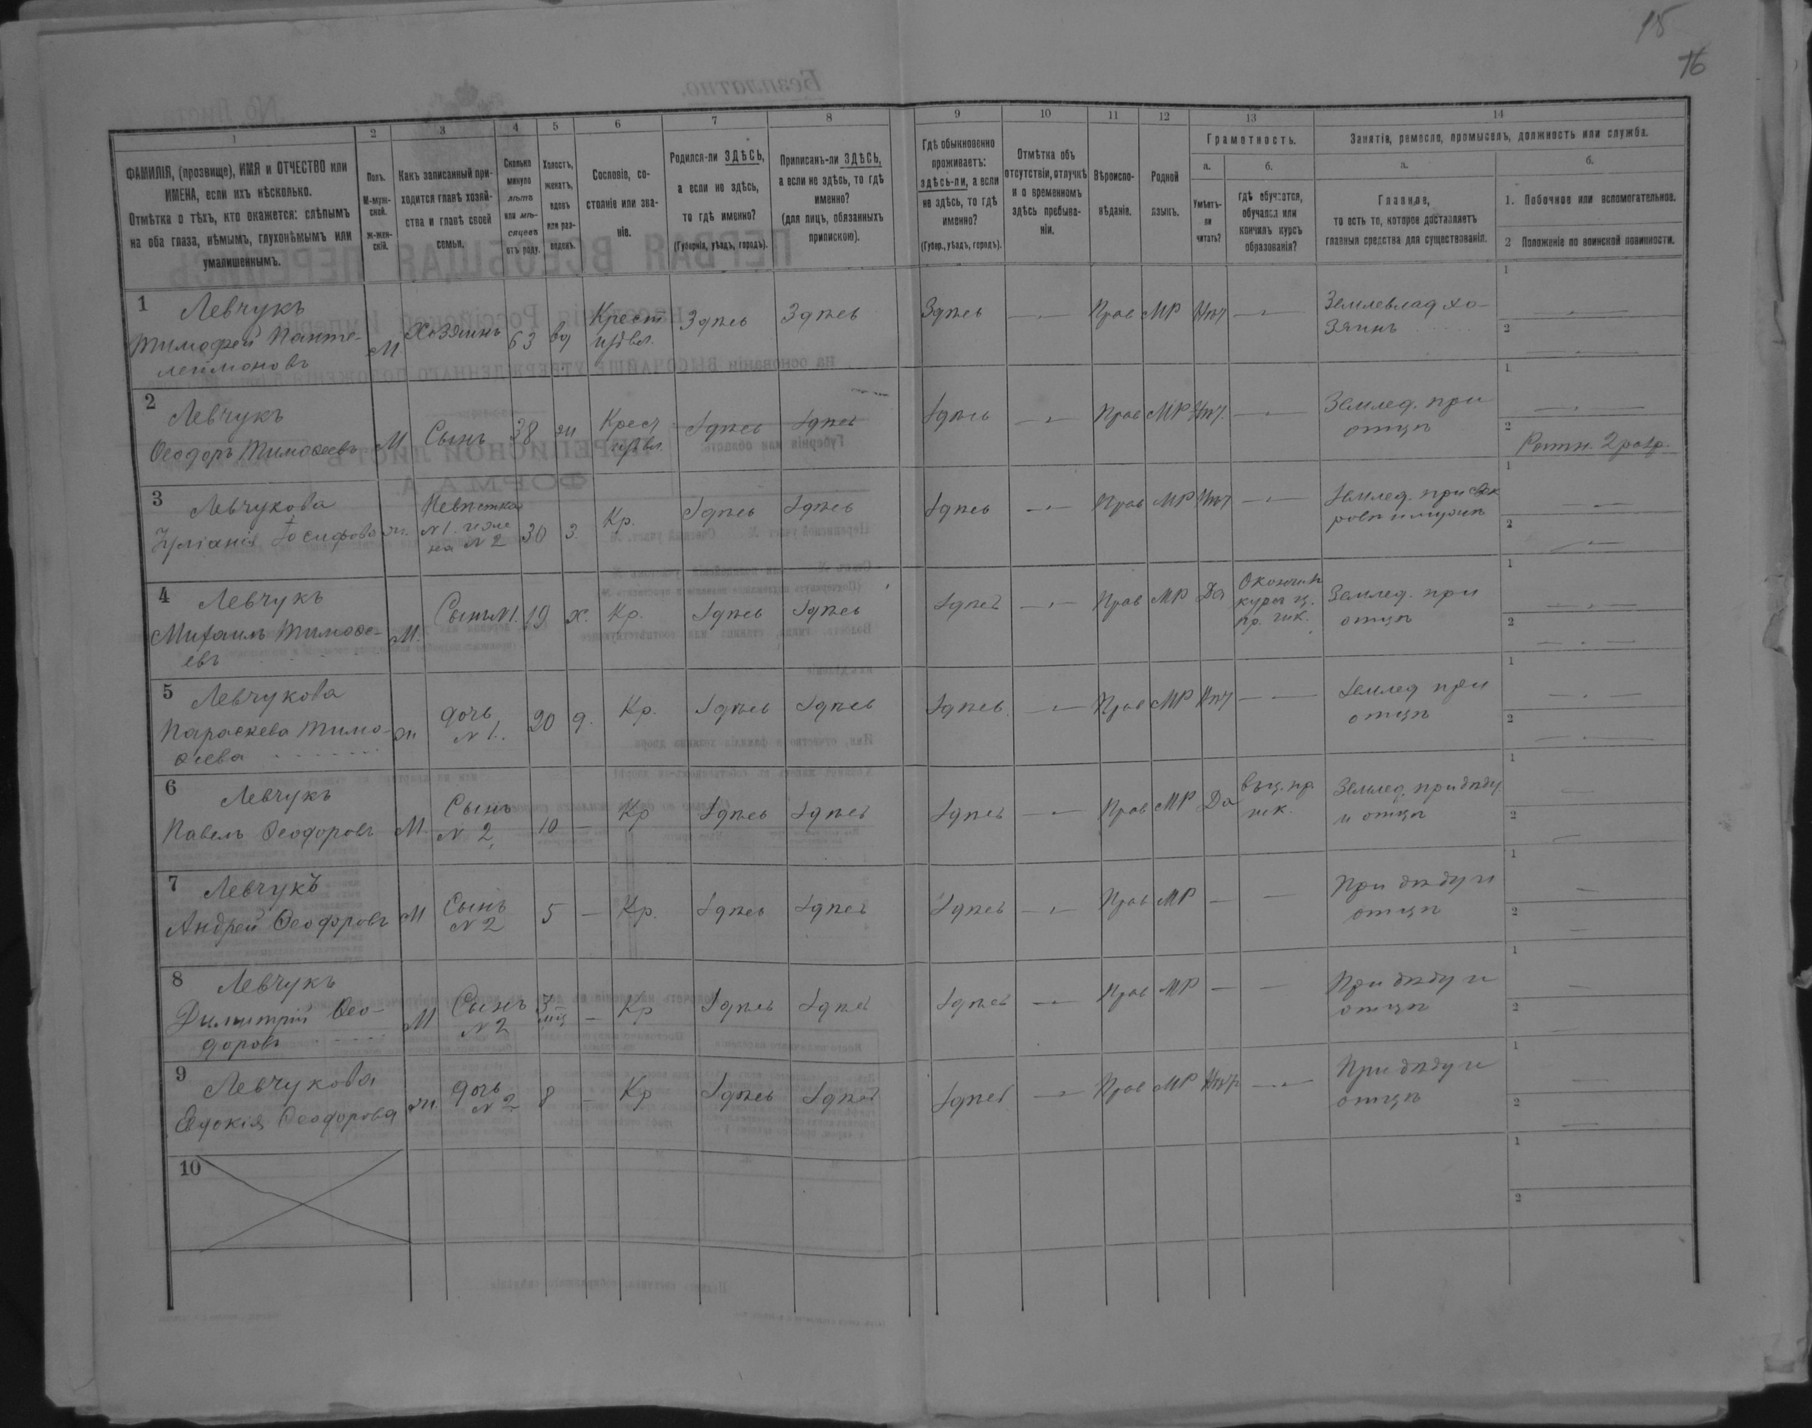 15
16
1
2
3
4
5
6
7
8
9
10
11
12
13
14
ФАМИЛІЯ, (прозвище), ИМЯ и ОТЧЕСТВО или
ИМЕНА, если ихъ нѣсколько.
Отмѣтка о тѣхъ, кто окажется: слѣпымъ
на оба глаза, нѣмымъ, глухонѣмымъ или
умалишеннымъ.
Полъ.
М-муж-
ской.
ж-жен-
скій.
Какъ записанный при-
ходится главѣ хозяй-
ства и главѣ своей
семьи.
Сколько
минуло
лѣтъ
или мѣ-
сяцевъ
отъ роду.
Холостъ,
женатъ,
вдовъ
или раз-
веденъ.
Сословіе, со-
стояніе или зва-
ніе.
Родился-ли ЗДѢСЬ,
а если не здѣсь,
то гдѣ именно?
(Губернія, уѣздъ, городъ).
Приписанъ-ли ЗДѢСЬ,
а если не здѣсь, то гдѣ
именно?
(для лицъ, обязанныхъ
припискою).
Гдѣ обыкновенно
проживаетъ:
здѣсь-ли, а если
не здѣсь, то гдѣ
именно?
(Губер., уѣздъ, городъ).
Отмѣтка объ
отсутствіи, отлучкѣ
и о временномъ
здѣсь пребыва-
ніи.
Вѣроиспо-
вѣданіе.
Родной
языкъ.
Грамотность.
а.
б.
Умѣетъ-
ли
читать?
гдѣ обучается,
обучался или
кончилъ курсъ
образованія?
Занятія, ремесло, промыселъ, должность или служба.
а.
б.
Главное,
то есть то, которое доставляетъ
главныя средства для существованія.
1. Побочное или вспомогательное.
2 Положеніе по воинской повинности.
1 Левчукъ
Тимофей Панте-
леймоновъ
М Хозяинъ 63 вд Крест
Здѣсь Здѣсь Здѣсь Прав МР Нѣт
Землевлад хо-
зяинъ
1
2
2 Левчукъ
Ѳеодоръ Тимоѳеевъ М Сынъ 38 ж Крест
Здѣсь Здѣсь Здѣсь Прав МР Нѣт
Землед. при
отцѣ
1
2 Ратн. 2 разр.
3 Левчукова
Іосифова ж. Невѣстка
№1. и же
на №2 30 з. Кр. Здѣсь Здѣсь Здѣсь Прав МР Нѣт
Землед. при свек
рѣ и мужѣ
1
2
4 Левчукъ
Михаилъ Тимоѳе-
евъ М. Сынъ №1. 19 х. Кр. Здѣсь Здѣсь Здѣсь Прав МР Да
Окончилъ
курс ц.
пр. шк.
Землед. при
отцѣ
1
2
5 Левчукова
Параскева Тимо-
ѳеева ж дочь
№1. 20 д. Кр. Здѣсь Здѣсь Здѣсь Прав МР Нѣт
Землед при
отцѣ
1
2
6 Левчукъ
Павелъ Ѳеодоровъ М. Сынъ
№2. 10 Кр Здѣсь Здѣсь Здѣсь Прав МР Да
въ ц. пр.
шк.
Землед. при дѣду
и отцѣ
1
2
7 Левчукъ
Андрей Ѳеодоровъ М Сынъ
№2 5 Кр. Здѣсь Здѣсь Здѣсь Прав МР
При дѣду и
отцѣ
1
2
8 Левчукъ
Димитрій Ѳео-
доровъ М Сынъ
№2 3
мц Кр Здѣсь Здѣсь Здѣсь Прав МР
При дѣду и
отцѣ
1
2
9 Левчукова
Евдокія Ѳеодорова ж. дочь
№2 8 Кр Здѣсь Здѣсь Здѣсь Прав МР Нѣт
При дѣду и
отцѣ
1
2
10
1
2